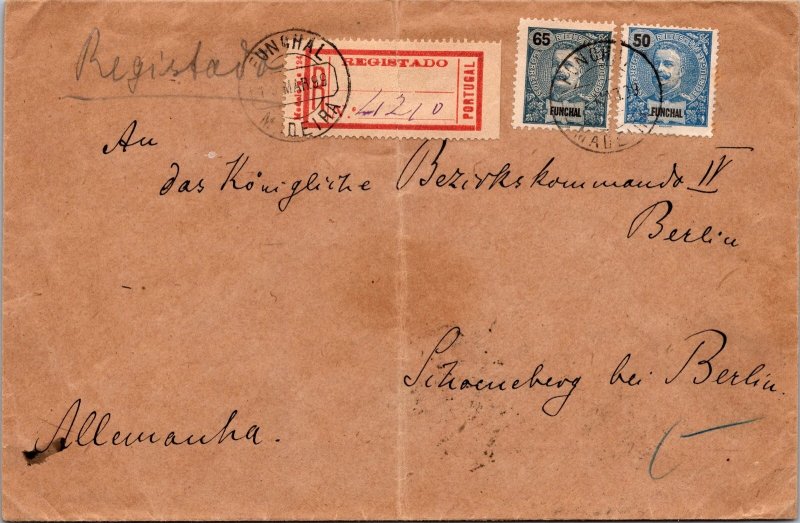 Registada
FUNCHAL
MAR.99
MADEIRA
REGISTADO
4210
PORTUGAL
65
FUNCHAL
50
FUNCHAL
FUNCHAL
MADEIRA
An
das Königliche Bezirkskommando IV
Berlin
Schoeneberg bei Berlin.
Allemanha.